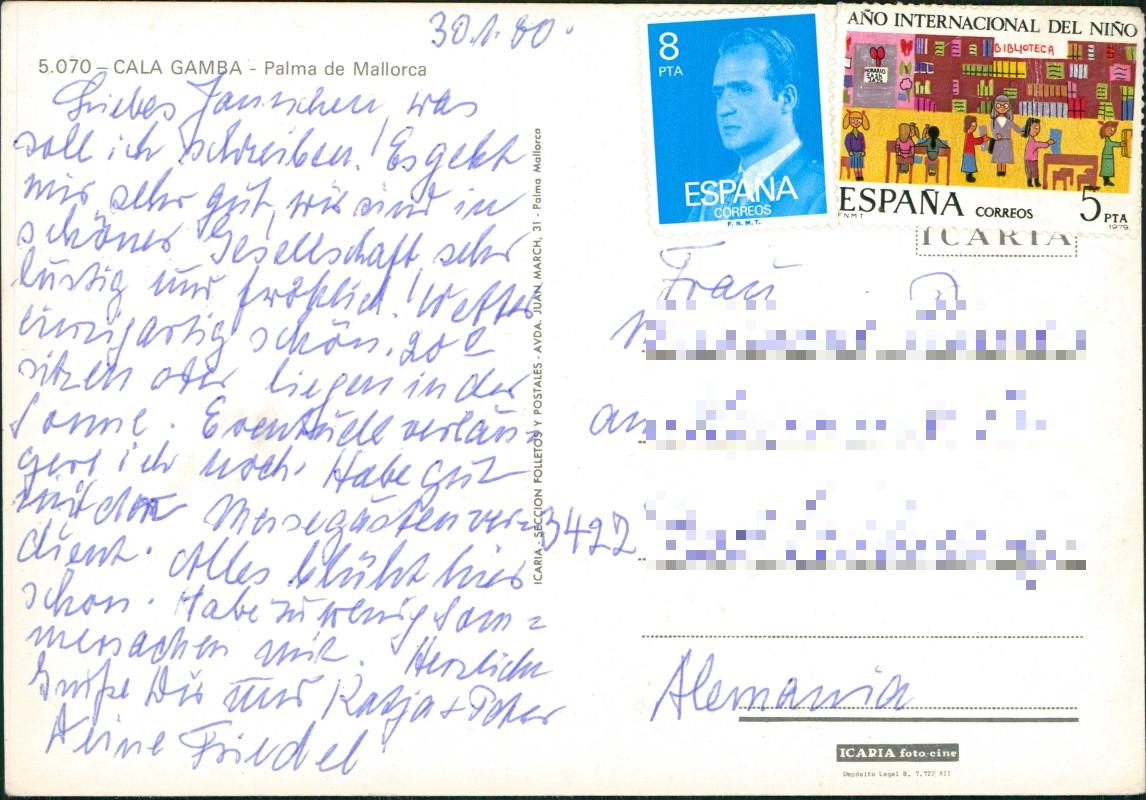 30.1.80.
5.070 – CALA GAMBA - Palma de Mallorca
Liebes Jannchen, was
soll ich schreiben! Es geht
mir sehr gut, wir sind in
schöner Gesellschaft sehr
lustig und fröhlich! Wetter
einzigartig schön. 20°
sitzen oder liegen in der
Sonne. Eventuell verlän=
gere ich noch. Habe gut
mit den Messegästen ver=
dient. Alles blüht hier
schon. Habe zu wenig Som=
mersachen mit. Herzliche
Grüße Dir und Katja + Peter
Deine Friedel
ICARIA, SECCION FOLLETOS Y POSTALES - AVDA. JUAN MARCH, 31 - Palma Mallorca
8
PTA
ESPAÑA
CORREOS
F.N.M.T.
AÑO INTERNACIONAL DEL NIÑO
BIBLIOTECA
HORARIO
ESPAÑA CORREOS 5 PTA
FNMT 1979
ICARIA
Frau
an
3422
Alemania
ICARIA foto-cine
Depósito Legal B. 7.722 XII